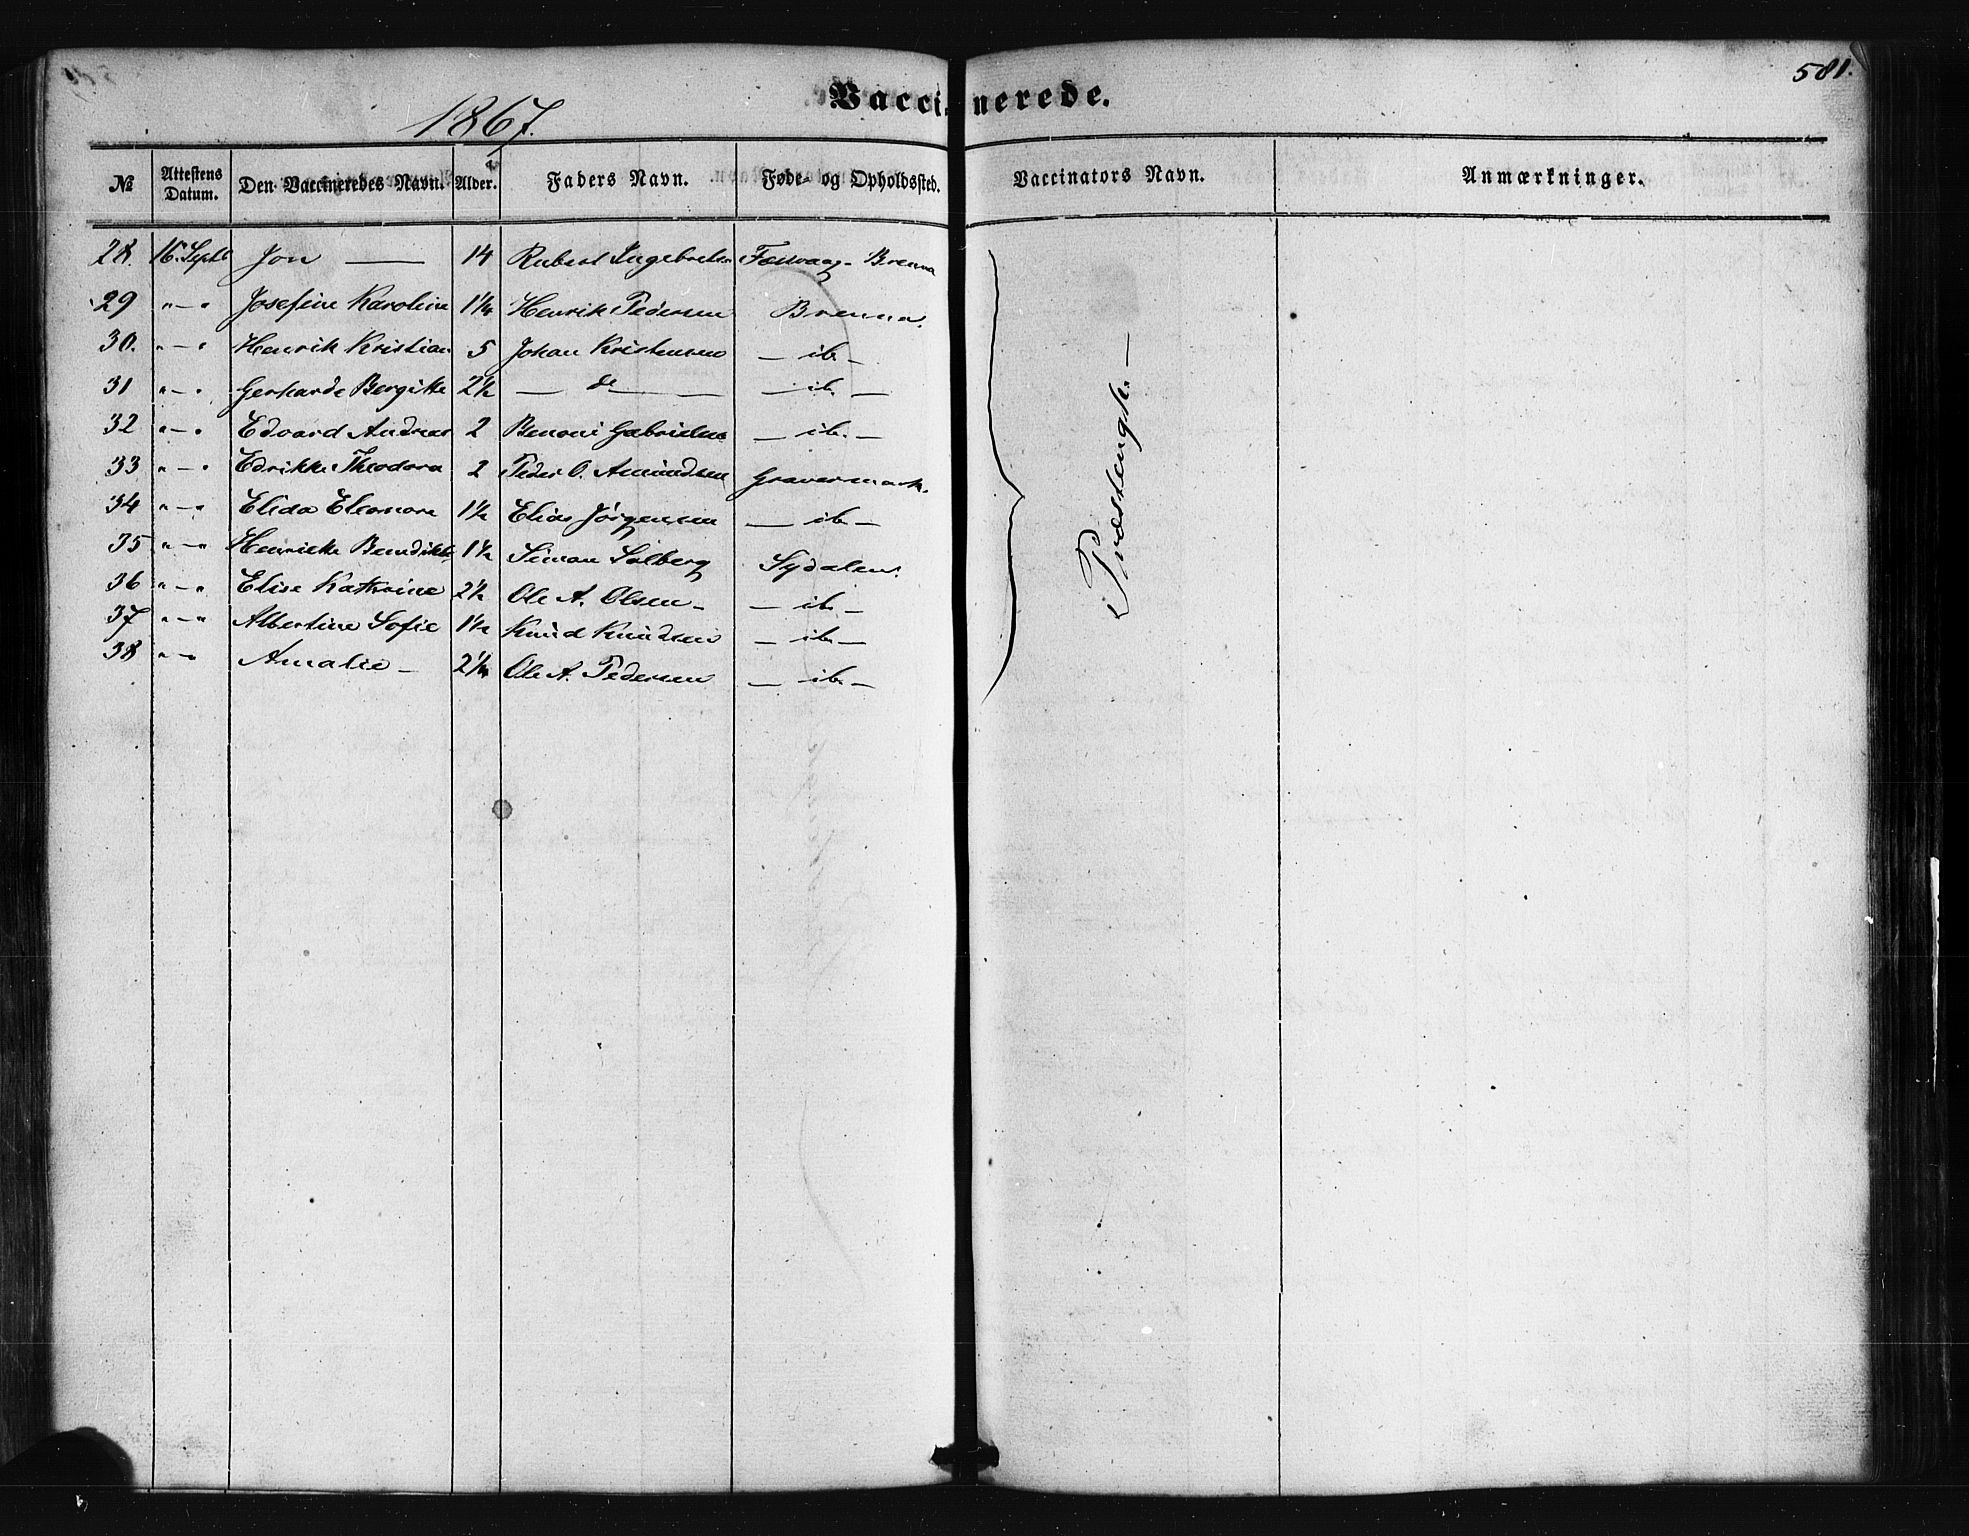 581.
Vaccinerede.
1867.
№ Attestens Datum. Den Vaccineredes Navn. Alder. Faders Navn. Føde- og Opholdssted. Vaccinators Navn. Anmærkninger.
28. 16 Septb Jon — 14 Rubert Ingebretsen Brenna
29 " — " Josefine Karoline 1¼ Henrik Pedersen Brenna.
30. " — " Henrik Kristian 5 Johan Kristensen — ib —
31 " — " Gerharde Bergitte 2½ — do — — ib. —
32 " — " Edvard Andreas 2 Benoni Gabrielsen — ib. —
33 " — " Edrikke Theodora 2 Peder O. Amundsen Gravermark.
34 " — " Elida Eleonora 1½ Elias Jörgensen — ib —
35 " — " Henrikke Benedikte 1½ Simon Solberg Sydalen.
36 " — " Elise Kathrine 2½ Ole A. Olsen — — ib —
37 " — " Albertine Sofie 1½ Knud Knudsen — ib —
38 " — " Amalie — 2¼ Ole A. Pedersen — ib —
Præstengh. —